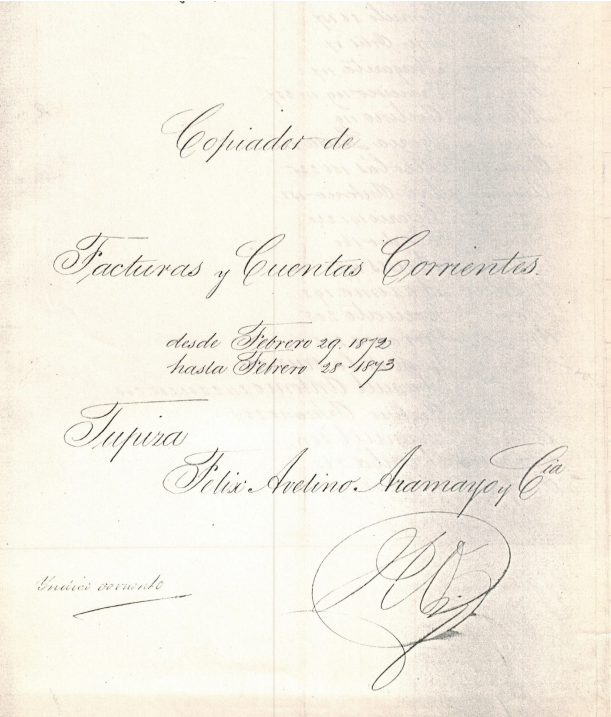 Copiador de
Facturas y Cuentas Corrientes.
desde Febrero 29. 1872
hasta Febrero 28 1873
Tupiza
Felix Avelino Aramayo y Cia
Indice corriente